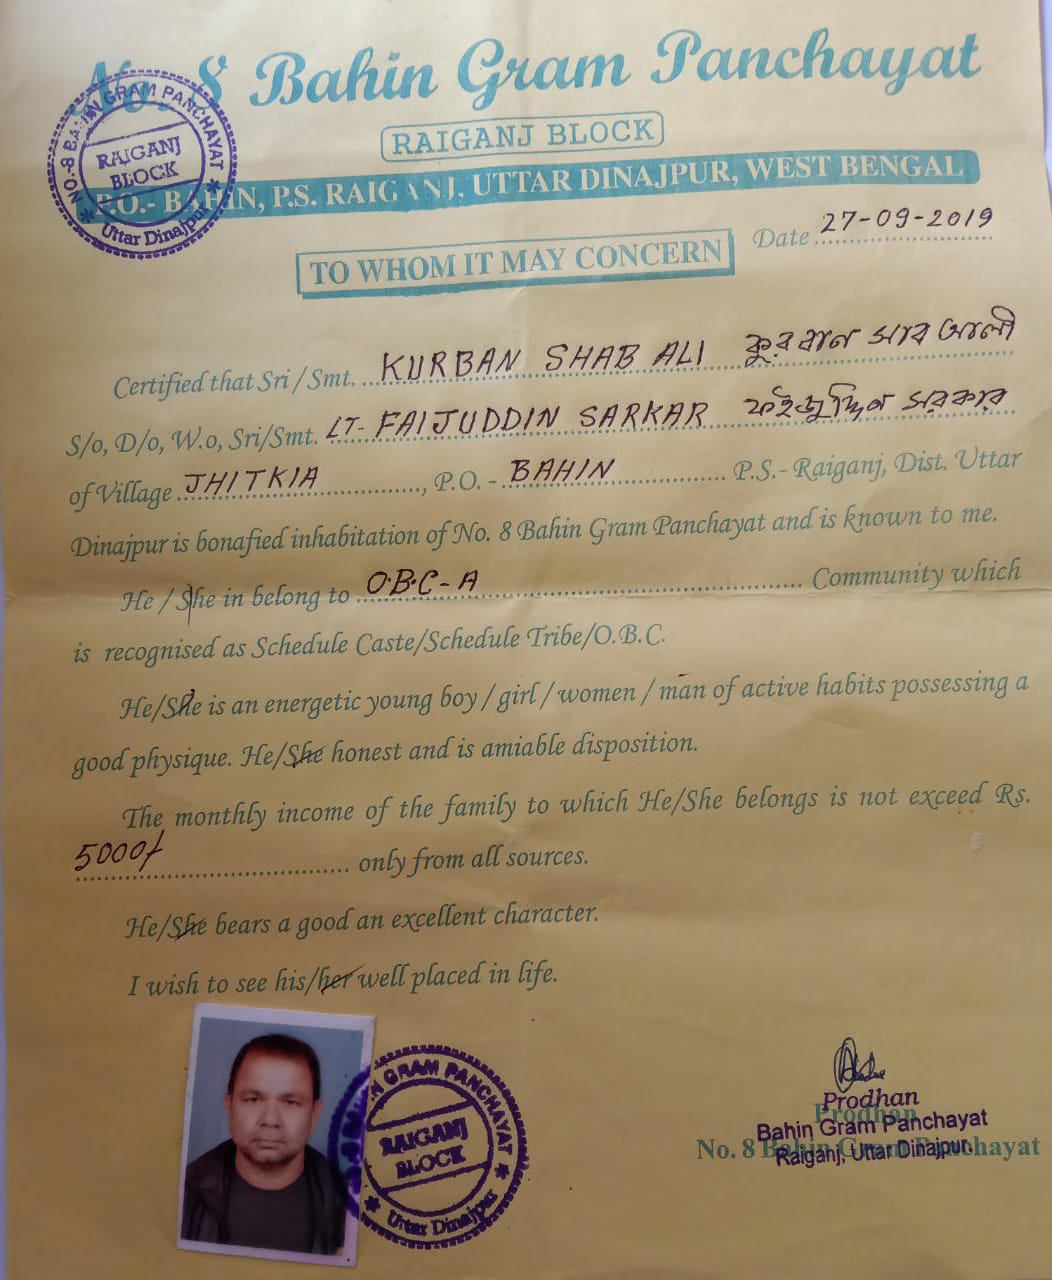 No. 8 Bahin Gram Panchayat
RAIGANJ BLOCK
P.O.- BAHIN, P.S. RAIGANJ, UTTAR DINAJPUR, WEST BENGAL
NO.-8 BAHIN GRAM PANCHAYAT
RAIGANJ
BLOCK
Uttar Dinajpur
Date 27-09-2019
TO WHOM IT MAY CONCERN
Certified that Sri/Smt. KURBAN SHAB ALI কুরবান সাব আলী
S/o, D/o, W.o, Sri/Smt. LT- FAIJUDDIN SARKAR ফইজুদ্দিন সরকার
of Village JHITKIA, P.O. - BAHIN P.S.- Raiganj, Dist. Uttar
Dinajpur is bonafied inhabitation of No. 8 Bahin Gram Panchayat and is known to me.
He / She in belong to O.B.C-A Community which
is recognised as Schedule Caste/Schedule Tribe/O.B.C.
He/She is an energetic young boy / girl / women / man of active habits possessing a
good physique. He/She honest and is amiable disposition.
The monthly income of the family to which He/She belongs is not exceed Rs.
5000/ only from all sources.
He/She bears a good an excellent character.
I wish to see his/her well placed in life.
GRAM PANCHAYAT
RAIGANJ
BLOCK
Uttar Dinajpur
Prodhan
Bahin Gram Panchayat
Raiganj, Uttar Dinajpur.
Prodhan
No. 8 Bahin Gram Panchayat